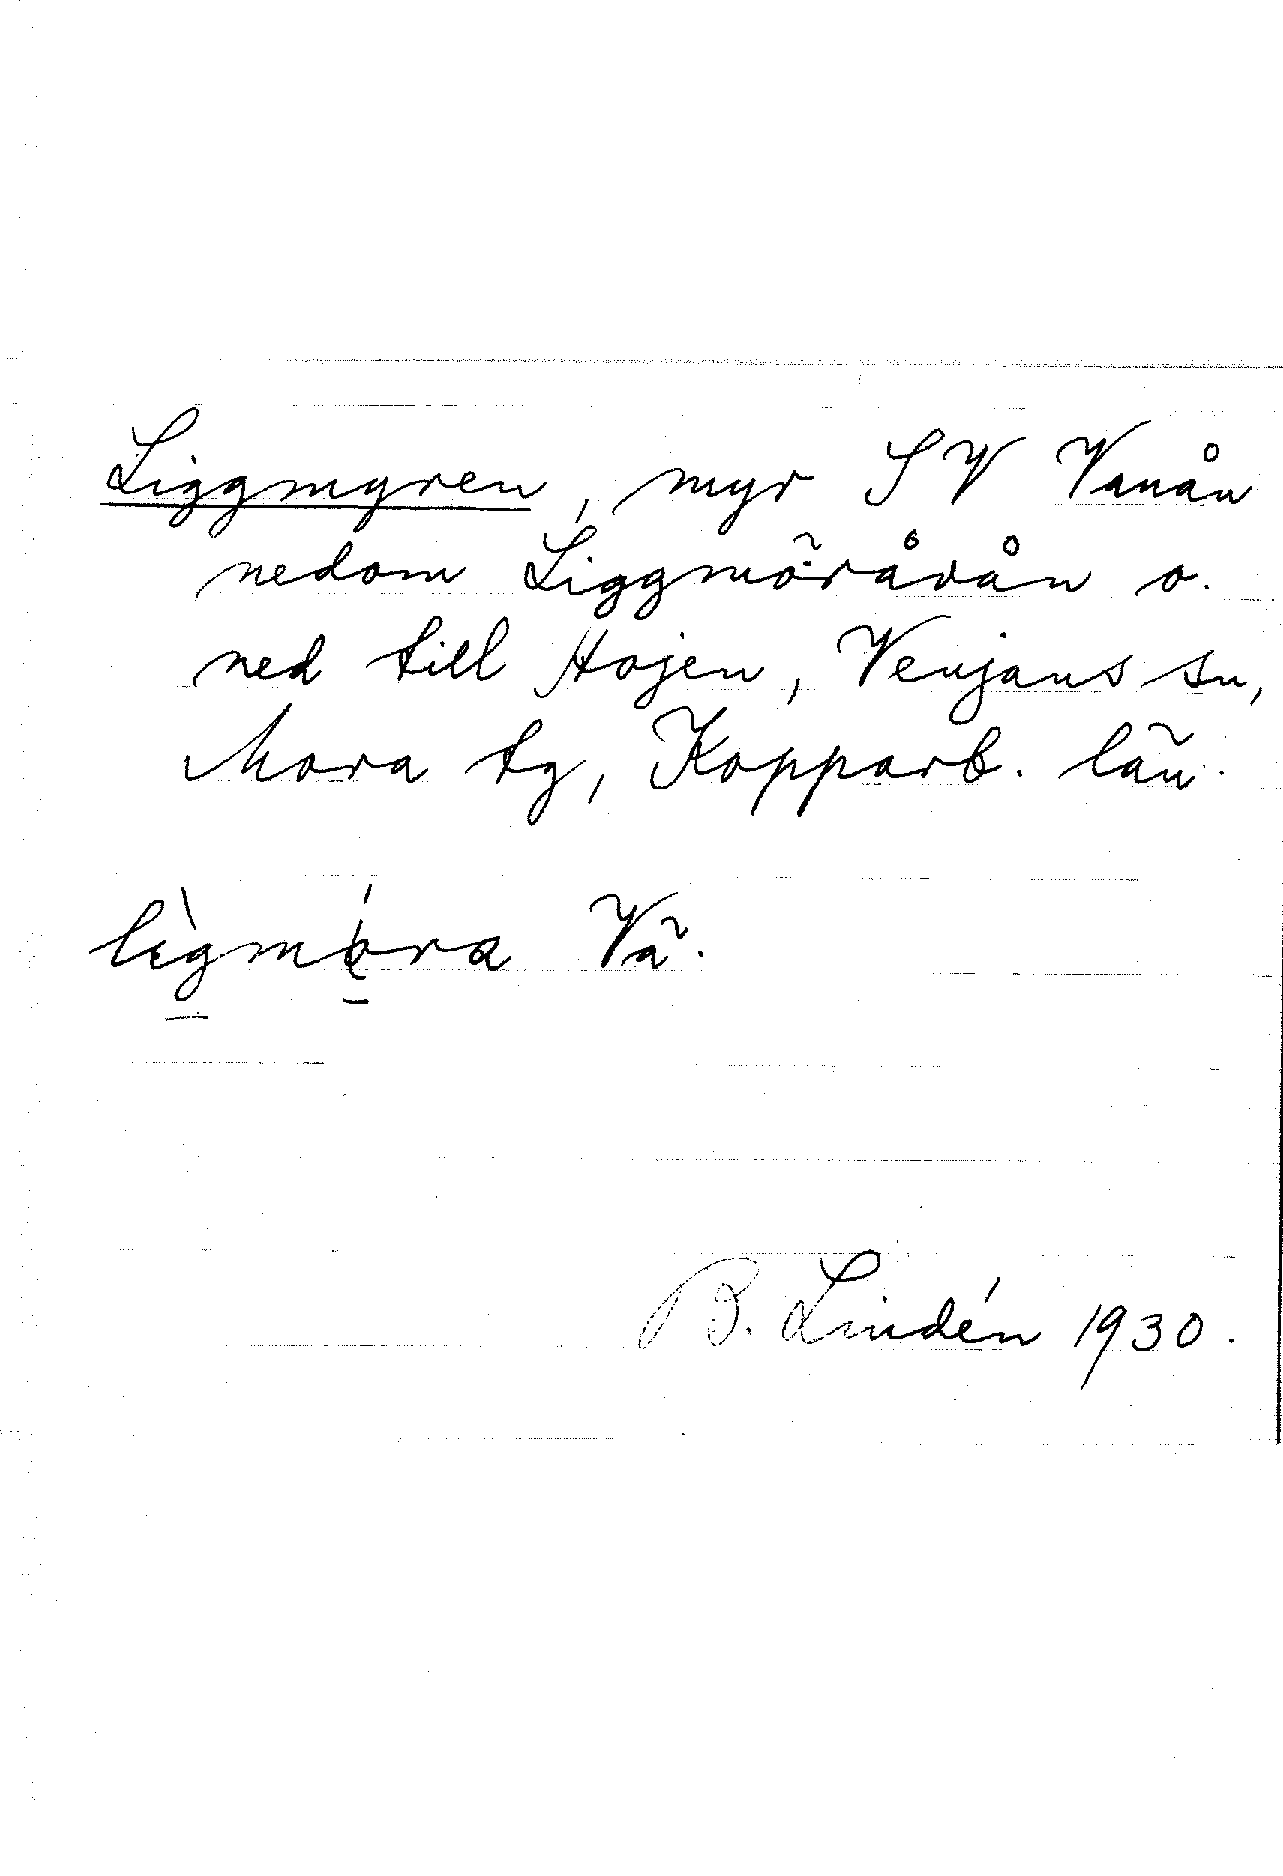 Liggmyren, myr S V Vanån
nedom Liggmöråvån o.
ned till Hojen, Venjans sn,
Mora tg, Kopparb. län.
Vä.
B. Lindén 1930.